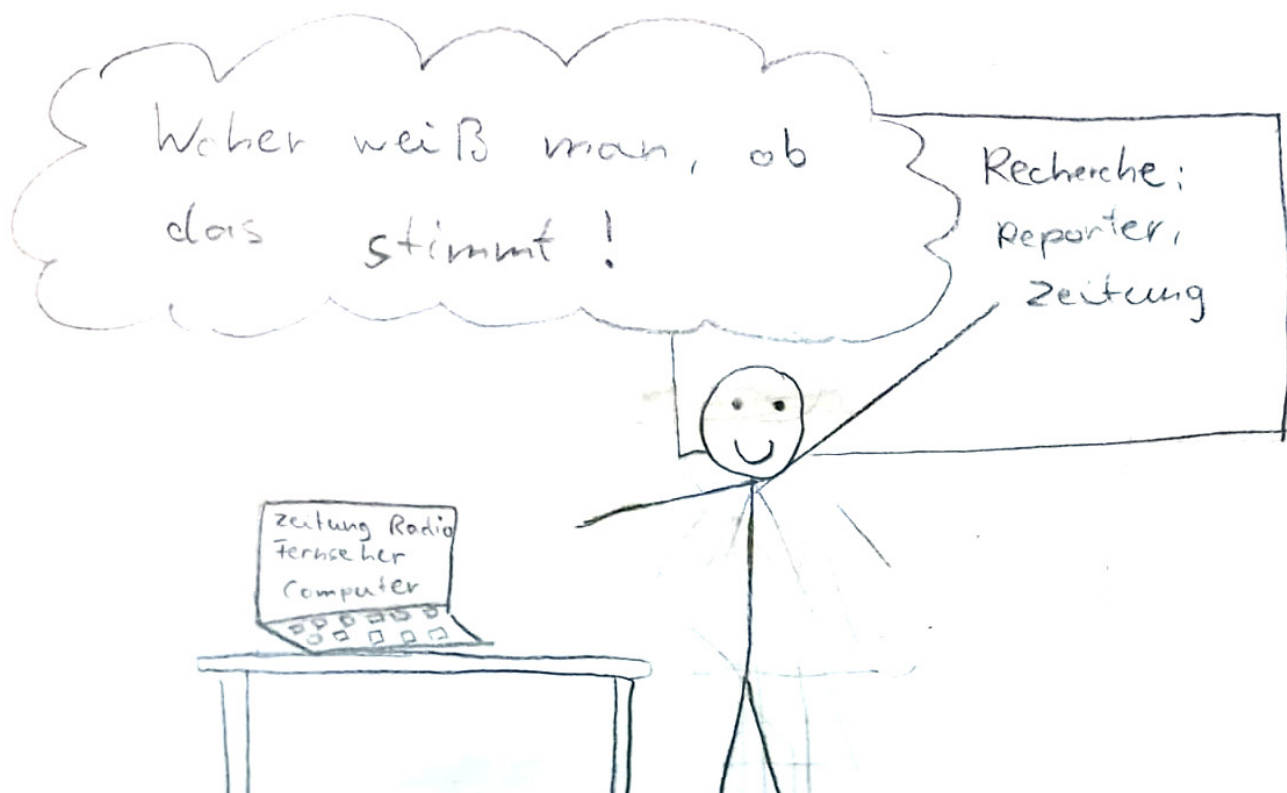 Woher weiß man, ob
das stimmt!
Recherche:
Reporter,
Zeitung
Zeitung Radio
Fernseher
Computer